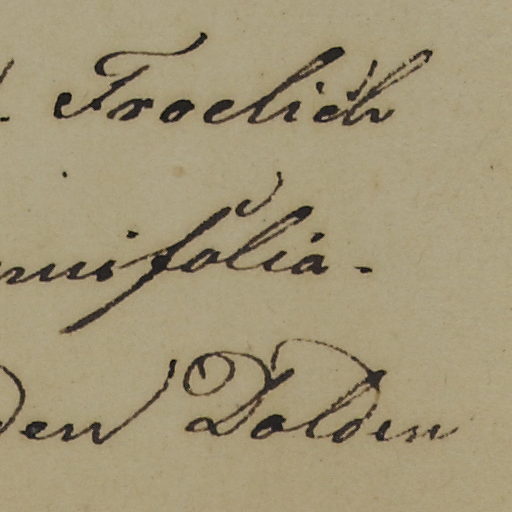 Froelich
nifolia.
den Dolden